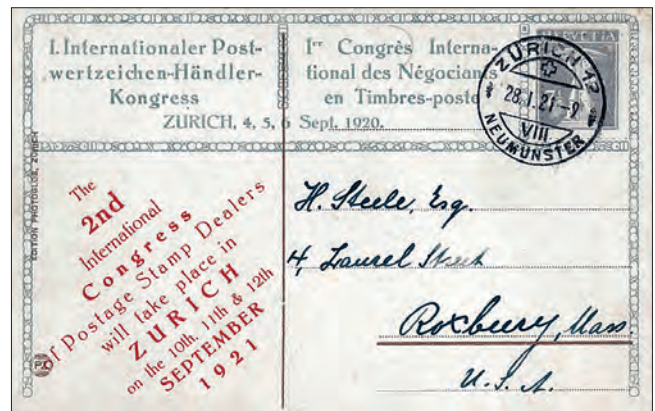 I. Internationaler Post-
wertzeichen-Händler-
Kongress
Ier Congrès Interna-
tional des Négociants
en Timbres-poste
ZURICH, 4, 5, 6 Sept. 1920.
HELVETIA
ZÜRICH 12
28.I.21.-9
VIII
NEUMÜNSTER
EDITION PHOTOGLOB, ZÜRICH
The
2nd
International
Congress
of Postage Stamp Dealers
will take place in
ZURICH
on the 10th, 11th & 12th
SEPTEMBER
1921
H. Steele, Esq.
4, Laurel Street
Roxbury, Mass.
U. S. A.